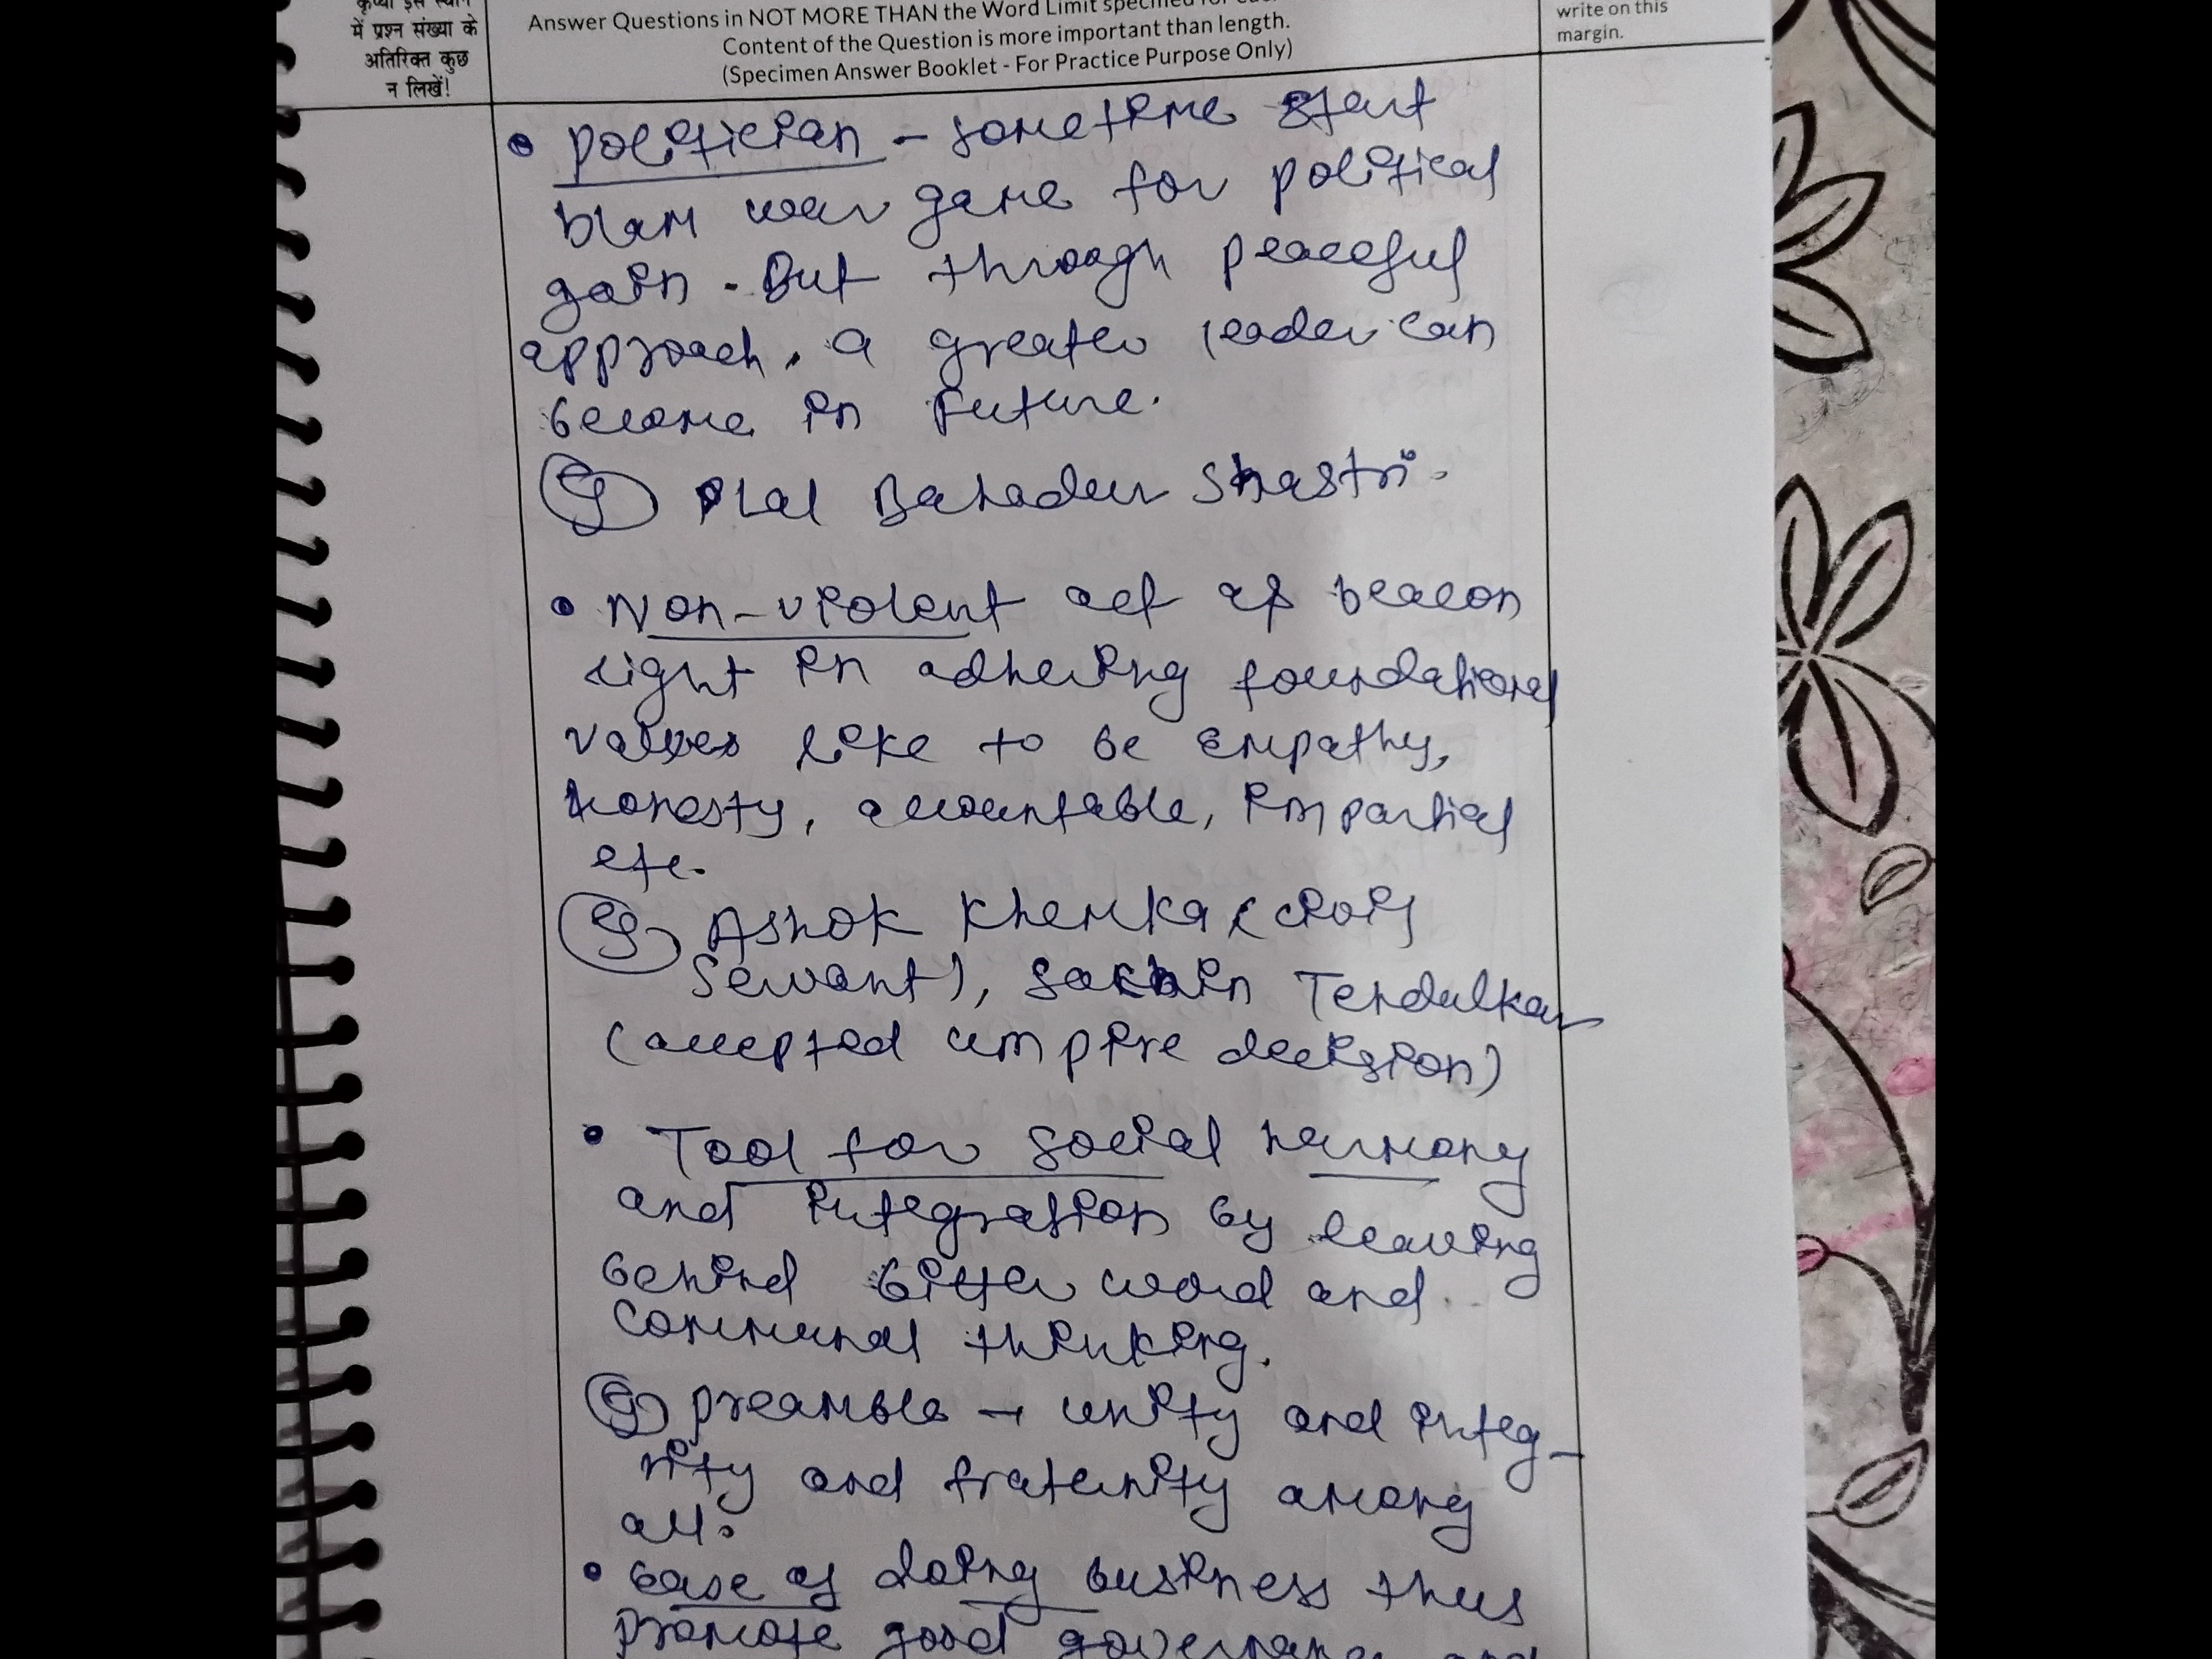 कृप्या इस स्थान
में प्रश्न संख्या के
अतिरिक्त कुछ
न लिखें!
Answer Questions in NOT MORE THAN the Word Limit specified for each
Content of the Question is more important than length.
(Specimen Answer Booklet - For Practice Purpose Only)
write on this
margin.
• politician - sometime start
blam war game for political
gain. But through peaceful
approach, a greater leader can
become in future.
Eg Lal Bahadur Shastri.
• Non-violent act as beacon
light in adhering foundational
values like to be empathy,
honesty, accountable, impartial
etc.
Eg Ashok Khemka (civil
servant), Sachin Tendulkar
(accepted umpire decision)
• Tool for social harmony
and integration by leaving
behind bitter word and
communal thinking.
Eg preamble → unity and integ-
rity and fraternity among
all.
• ease of doing business thus
promote good governance and